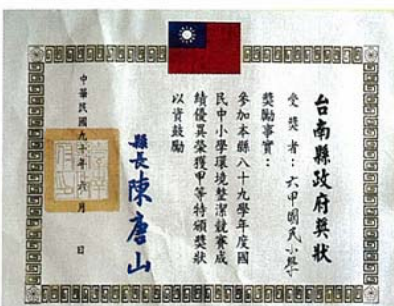 台南縣政府獎狀
受獎者：六甲國民小學
獎勵事實：
參加本縣八十九學年度國
民中小學環境整潔競賽成
績優異榮獲甲等特頒獎狀
以資鼓勵
縣長陳唐山
中華民國九十年六月 日